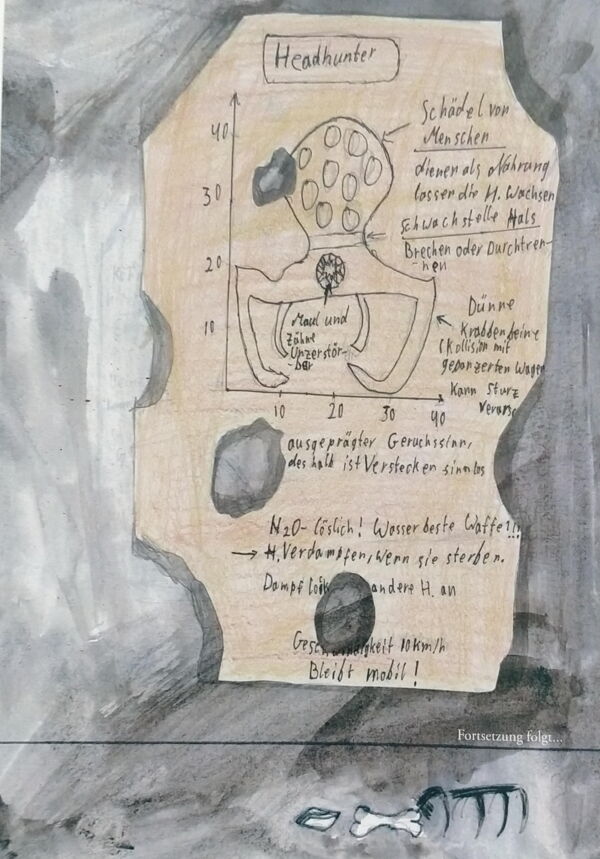 Headhunter
40
30
20
10
10
20
30
40
Schädel von
Menschen
dienen als Nahrung
lassen die H. Wachsen
Schwachstelle Hals
Brechen oder Durchtren-
-nen
Maul und
Zähne
Unzerstör-
-bar
Dünne
Krabbenbeine
(Kollision mit
gepanzerten Wagen
Kann Sturz
ausgeprägter Geruchssinn,
deshalb ist Verstecken sinnlos
N2O-löslich! Wasser beste Waffe!!!
→ H. Verdampfen, wenn sie sterben.
Dampf andere H. an
10 km/h
Bleibt mobil!
Fortsetzung folgt...